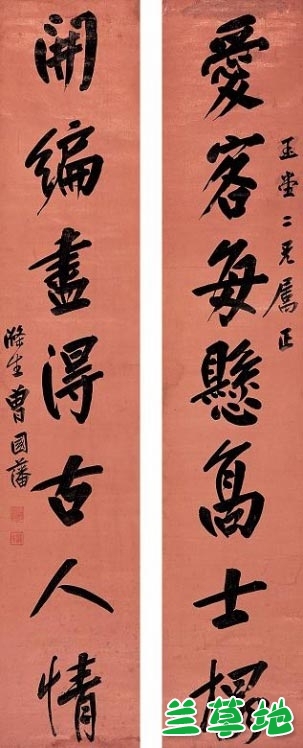 玉堂二兄屬正
愛客每懸高士榻
開編盡得古人情
滌生曾國藩
兰草地